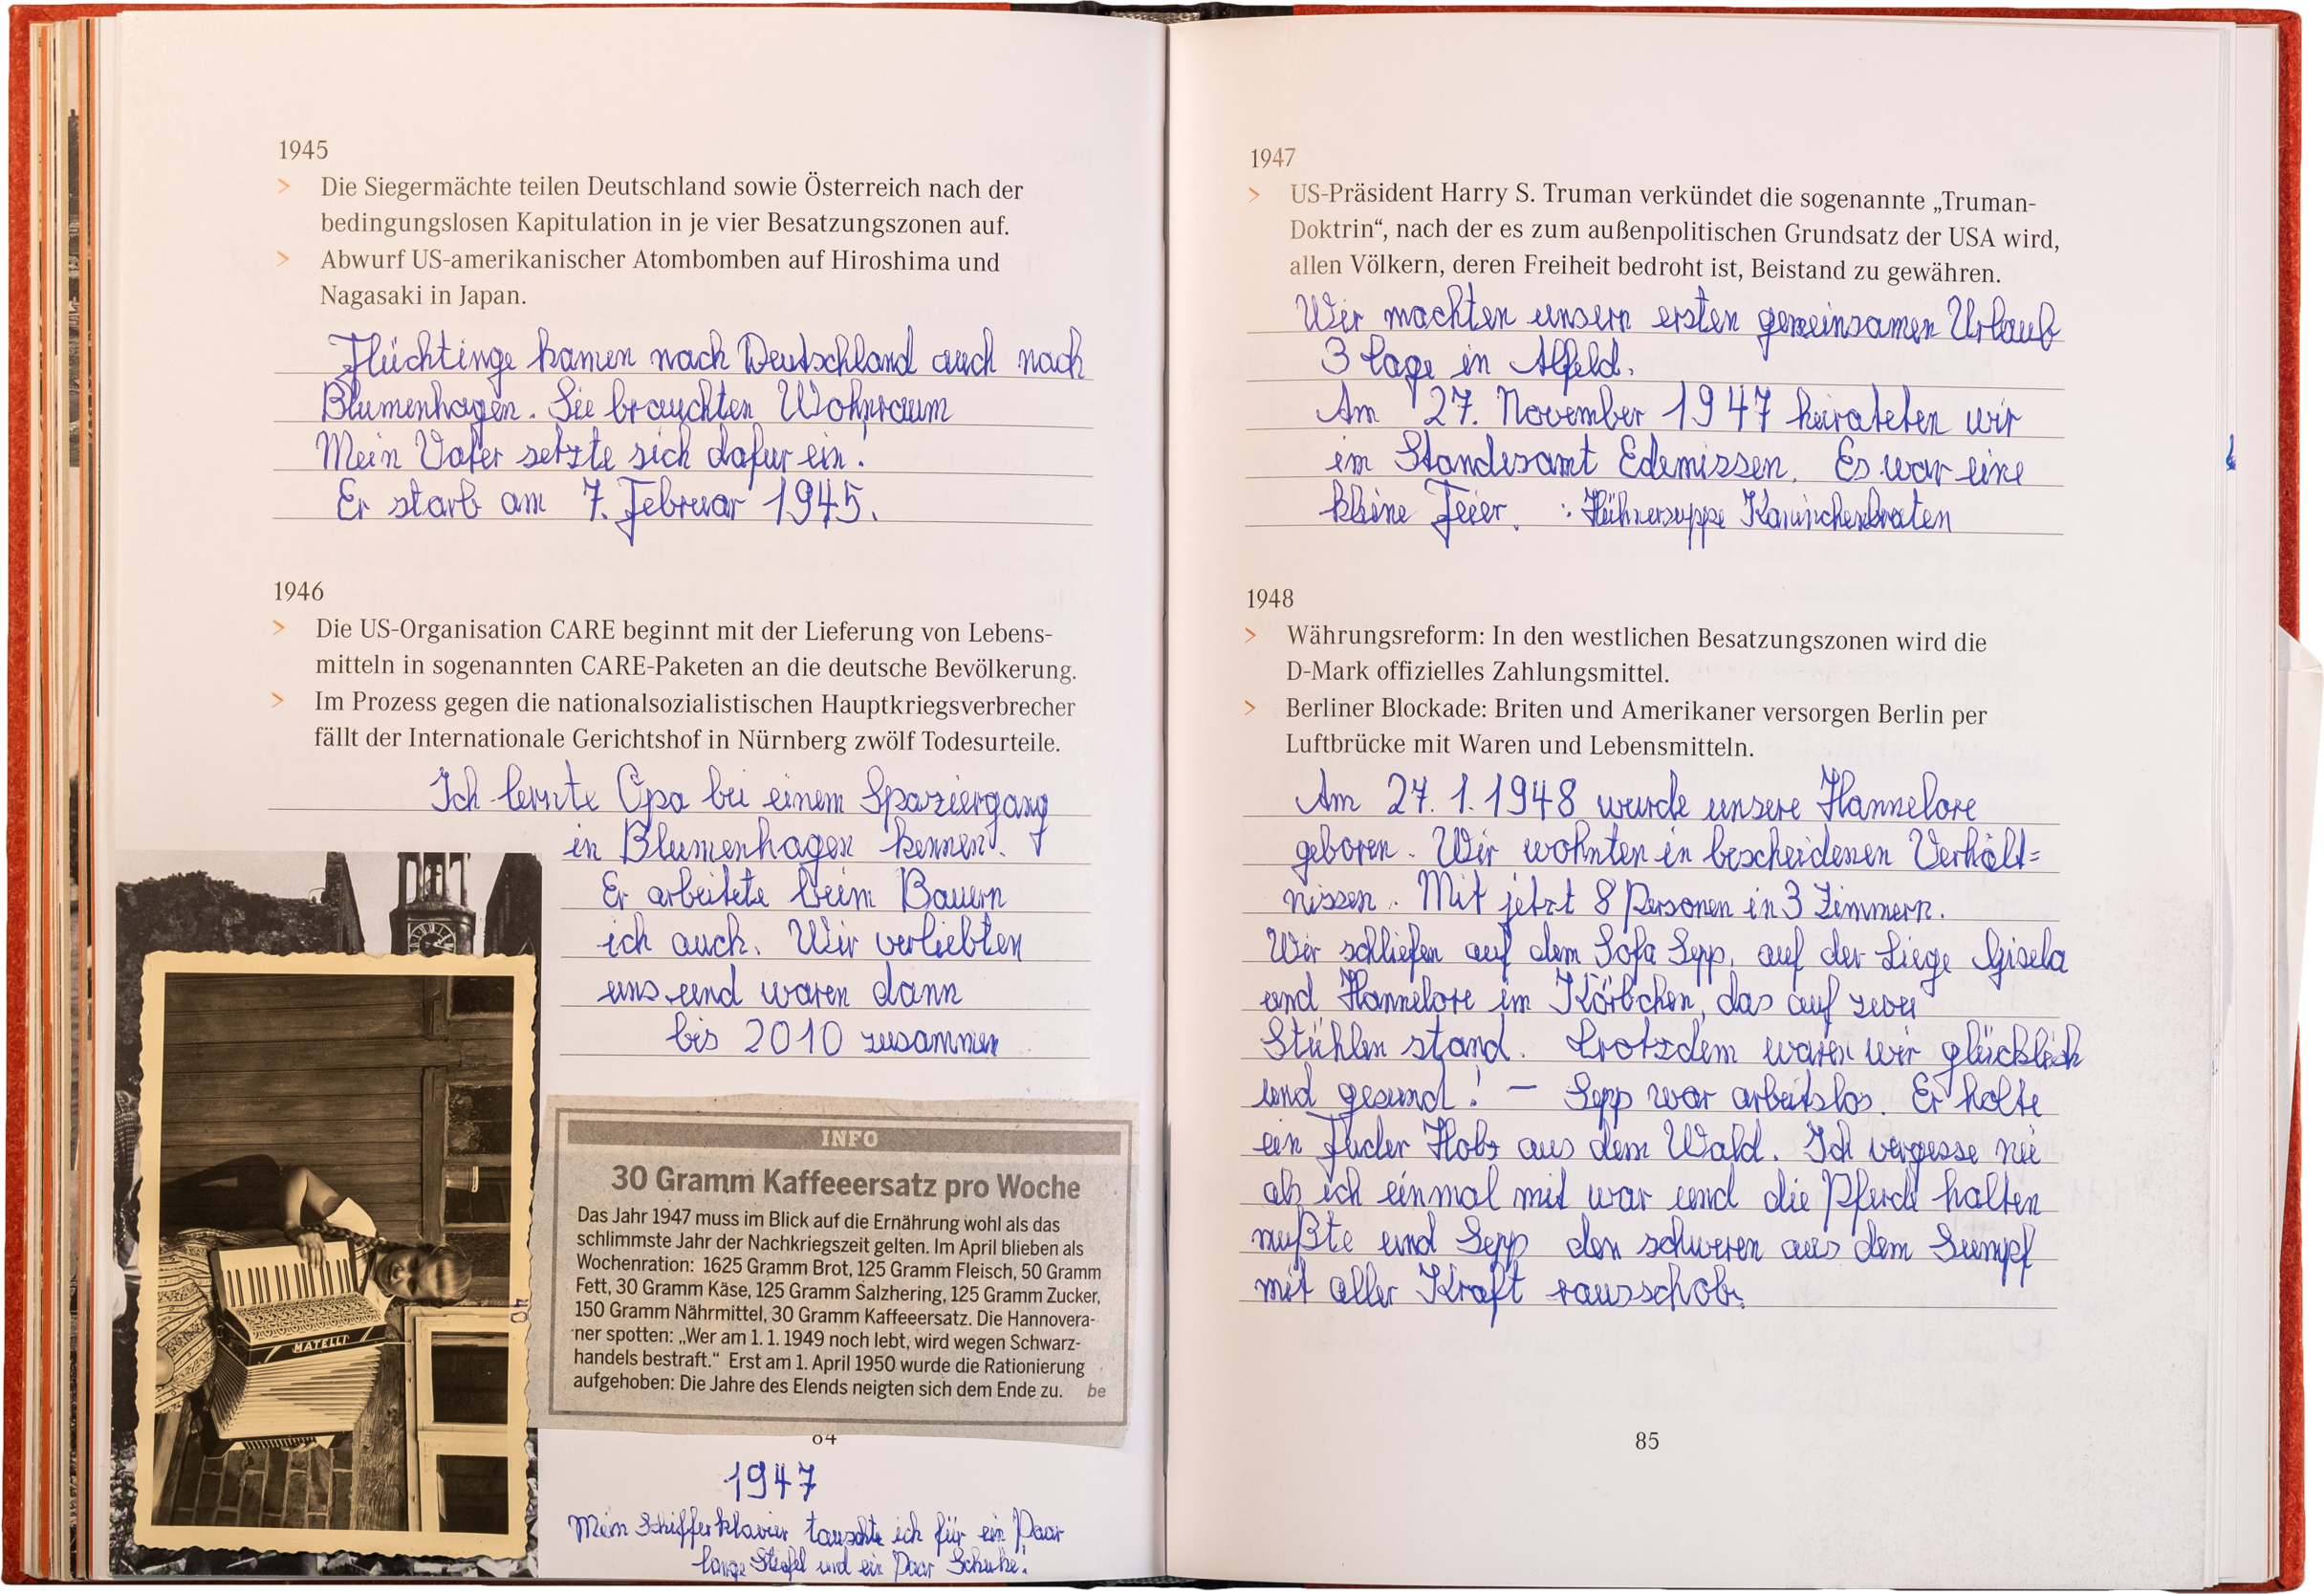 1945
> Die Siegermächte teilen Deutschland sowie Österreich nach der
bedingungslosen Kapitulation in je vier Besatzungszonen auf.
> Abwurf US-amerikanischer Atombomben auf Hiroshima und
Nagasaki in Japan.
Flüchtinge kamen nach Deutschland auch nach
Blumenhagen. Sie brauchten Wohnraum
Mein Vater setzte sich dafür ein!
Er starb am 7. Februar 1945.
1946
> Die US-Organisation CARE beginnt mit der Lieferung von Lebens-
mitteln in sogenannten CARE-Paketen an die deutsche Bevölkerung.
> Im Prozess gegen die nationalsozialistischen Hauptkriegsverbrecher
fällt der Internationale Gerichtshof in Nürnberg zwölf Todesurteile.
Ich lernte Opa bei einem Spaziergang
in Blumenhagen kennen.
Er arbeitete beim Bauern
ich auch. Wir verliebten
uns und waren dann
bis 2010 zusammen
MATELLI
40
INFO
30 Gramm Kaffeeersatz pro Woche
Das Jahr 1947 muss im Blick auf die Ernährung wohl als das
schlimmste Jahr der Nachkriegszeit gelten. Im April blieben als
Wochenration: 1625 Gramm Brot, 125 Gramm Fleisch, 50 Gramm
Fett, 30 Gramm Käse, 125 Gramm Salzhering, 125 Gramm Zucker,
150 Gramm Nährmittel, 30 Gramm Kaffeeersatz. Die Hannovera-
ner spotten: „Wer am 1. 1. 1949 noch lebt, wird wegen Schwarz-
handels bestraft.“ Erst am 1. April 1950 wurde die Rationierung
aufgehoben: Die Jahre des Elends neigten sich dem Ende zu. be
84
1947
Mein Schifferklavier tauschte ich für ein Paar
lange Stiefel und ein Paar Schuhe!
1947
> US-Präsident Harry S. Truman verkündet die sogenannte „Truman-
Doktrin“, nach der es zum außenpolitischen Grundsatz der USA wird,
allen Völkern, deren Freiheit bedroht ist, Beistand zu gewähren.
Wir machten unsern ersten gemeinsamen Urlaub
3 Tage in Alfeld.
Am 27. November 1947 heirateten wir
im Standesamt Edemissen. Es war eine
kleine Feier. : Hühnersuppe Kaninchenbraten
1948
> Währungsreform: In den westlichen Besatzungszonen wird die
D-Mark offizielles Zahlungsmittel.
> Berliner Blockade: Briten und Amerikaner versorgen Berlin per
Luftbrücke mit Waren und Lebensmitteln.
Am 27. 1. 1948 wurde unsere Hannelore
geboren. Wir wohnten in bescheidenen Verhält=
nissen. Mit jetzt 8 Personen in 3 Zimmern.
Wir schliefen auf dem Sofa Sepp, auf der Liege Gisela
und Hannelore im Körbchen, das auf zwei
Stühlen stand. Trotzdem waren wir glücklich
und gesund! – Sepp war arbeitslos. Er holte
ein Fuder Holz aus dem Wald. Ich vergesse nie
als ich einmal mit war und die Pferde halten
mußte und Sepp den schweren aus dem Sumpf
mit aller Kraft rausschob.
85